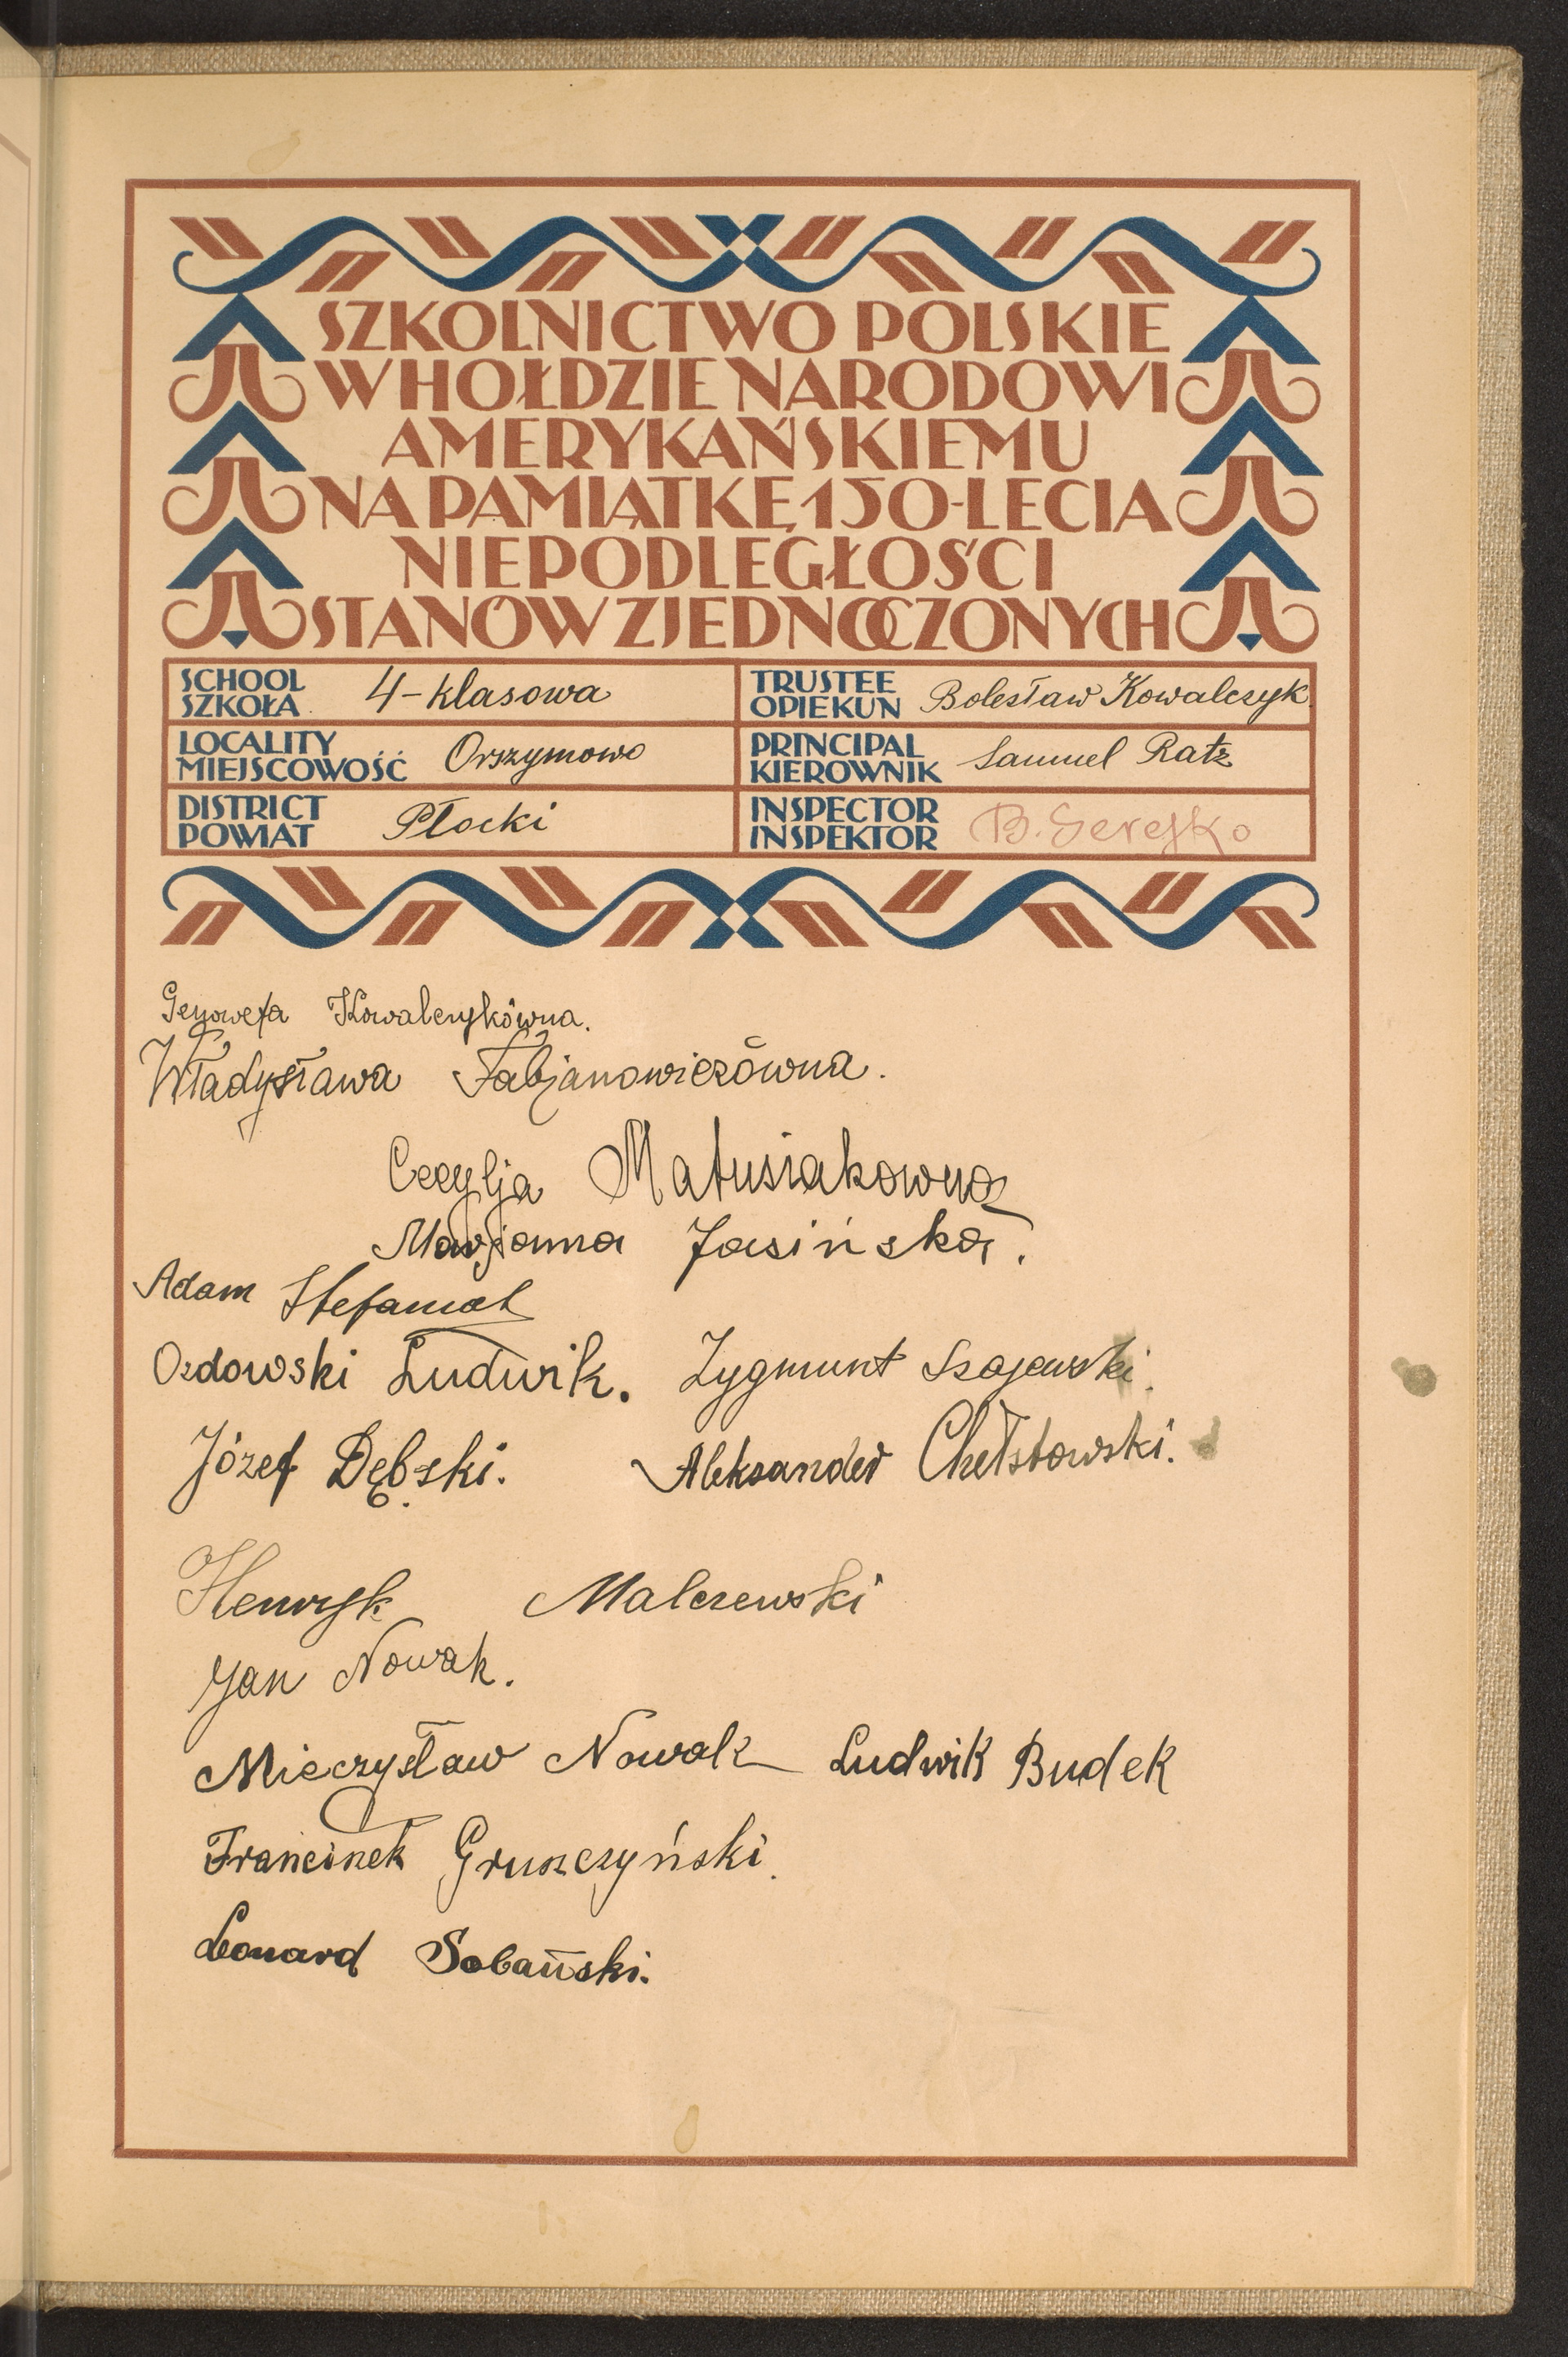 SZKOLNICTWO POLSKIE
W HOŁDZIE NARODOWI
AMERYKAŃSKIEMU
NA PAMIĄTKĘ 150-LECIA
NIEPODLEGŁOŚCI
STANÓW ZJEDNOCZONYCH
SCHOOL
SZKOŁA 4-klasowa
TRUSTEE
OPIEKUN Bolesław Kowalczyk
LOCALITY
MIEJSCOWOŚĆ Orszymowo
PRINCIPAL
KIEROWNIK Samuel Ratz
DISTRICT
POWIAT Płocki
INSPECTOR
INSPEKTOR B. Serejko
Genowefa Kowalczykówna.
Władysława Fabjanowiczówna.
Cecylja Matusiakówna
Marjanna Jasińska.
Adam Stefaniak
Ozdowski Ludwik. Zygmunt Szajewski.
Józef Dębski. Aleksander Chełstowski.
Henryk Malczewski
Jan Nowak.
Mieczysław Nowak Ludwik Budek
Franciszek Gruszczyński.
Leonard Sobański.